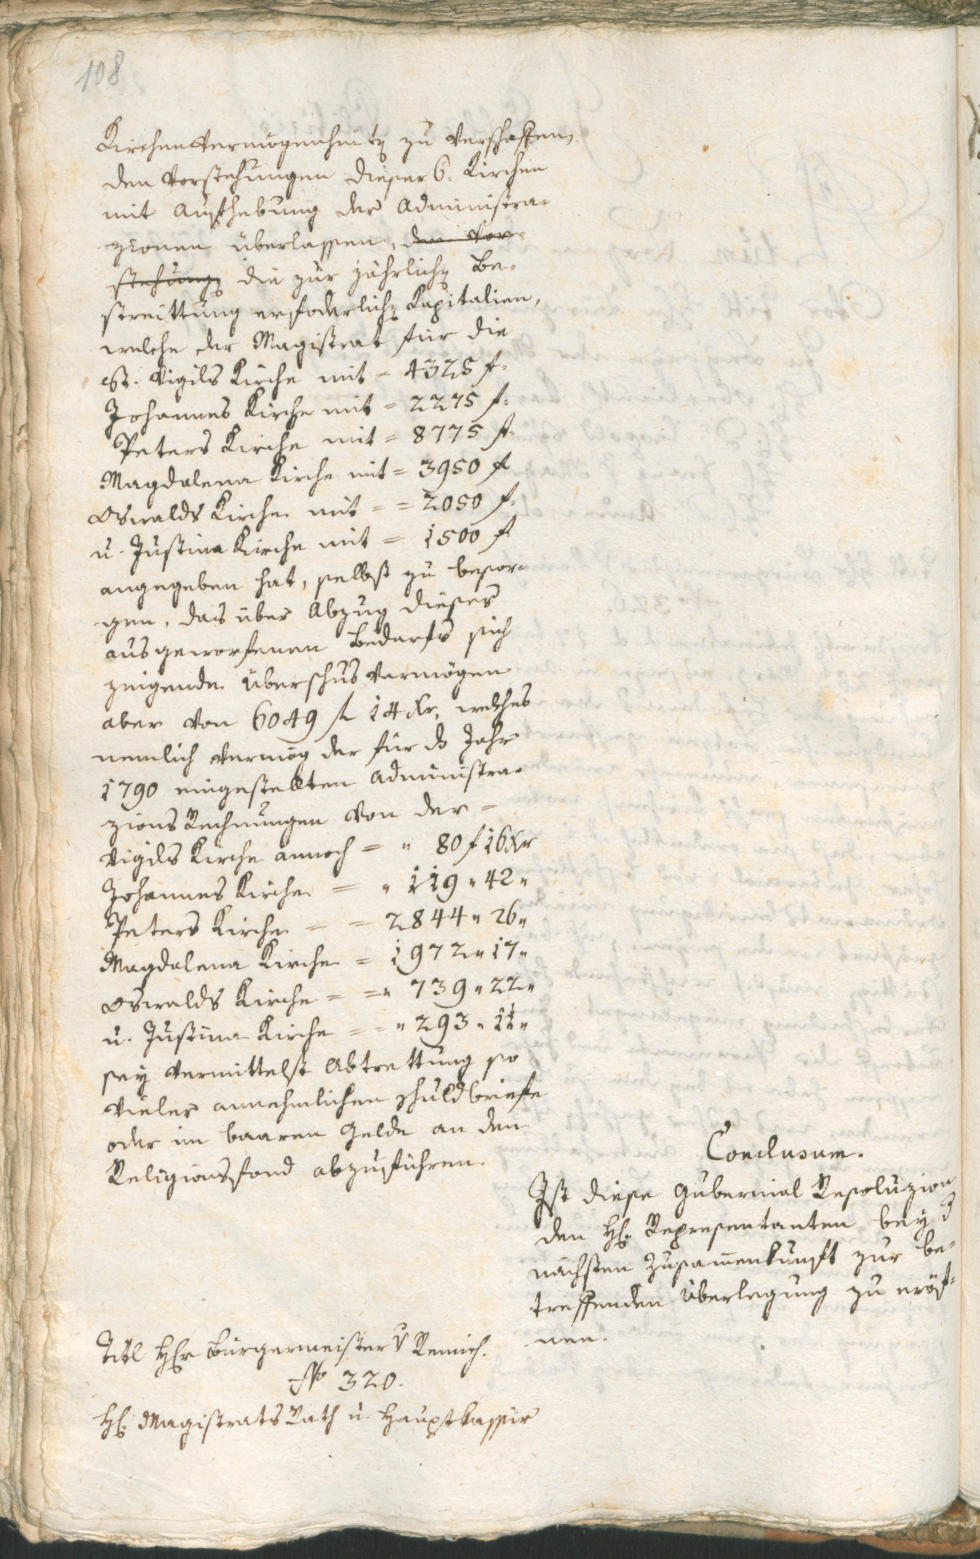 108
Kirchenvermögenheit zu verschaffen,
den Vorstehungen dieser 6. Kirchen
mit Aufhebung der Administra-
zionen überlassen, den Vor-
stehungen die zur jährlichen Be-
streittung erfoderlichen Kapitalien,
welche der Magistrat für die
St. Vigils Kirche mit = 4325 f.
Johannes Kirche mit = 2275 f.
Peters Kirche mit = 8775 f.
Magdalena Kirche mit = 3950 f
Oswalds Kirche mit = = 2050 f.
u. Justina Kirche mit = 1500 f
angegeben hat, selbst zu besor-
gen, das über Abzug dieses
ausgeworfenen Bedarfs sich
zeigende Überschus Vermögen
aber von 6049 f 14 Kr, welches
nemlich vermög der für ds Jahr
1790 eingestellten Administra-
zions Rechnungen von der =
Vigils Kirche annoch = " 80 f 16 Kr
Johannes Kirche = " 119 " 42 "
Peters Kirche = = 2844 " 26 "
Magdalena Kirche = 1972 " 17 "
Oswalds Kirche = = " 739 " 22 "
u. Justina Kirche = = " 293 " 11 "
sey vermittelst Abtrettung so
vieler annehmlichen Schuldbriefe
oder im baaren Gelde an den
Religionsfond abzuführen.
Conclusum.
Ist diese Gubernial Resoluzion
den H. Representanten bey d
nächsten Zusamenkunft zur be-
treffenden Überlegung zu eröf-
nen.
Titl Hr Bürgermeister v Remich.
No 320.
H. Magistrats Rath u. Hauptkassier